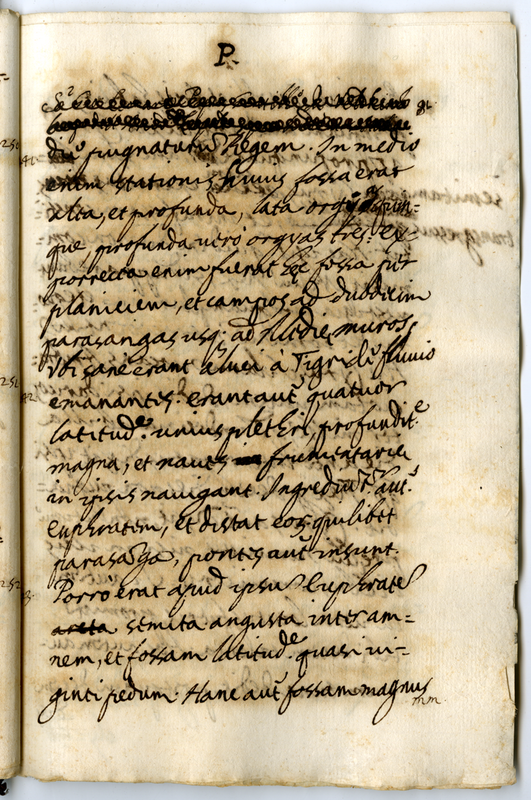 P.
diē pugnaturū Regem. In medio
enim stationis huius fossa erat
alta, et profunda, lata orgyas quin=
que, profunda verò orgyas tres. ex=
porrecta enim fuerat haec fossa per
planiciem, et campos ad duodecim
parasangas usq; ad Mediae muros,
Ubi sanè erant aluei à Tigridē fluvio
emanantes: erant aut̄ quatuor
latitud.e unius plethri, profundit.e
magna, et naues frumentariae
in ipsis navigant. Ingrediūt.r aut̄
euphratem, et distat eos quilibet
parasāga, pontes aut̄ insunt.
Porrò erat apud ipsū Euphratē
arcta semita angusta inter am=
nem, et fossam latitud.e quasi vi=
ginti pedum. Hanc aut̄ fossam magnus